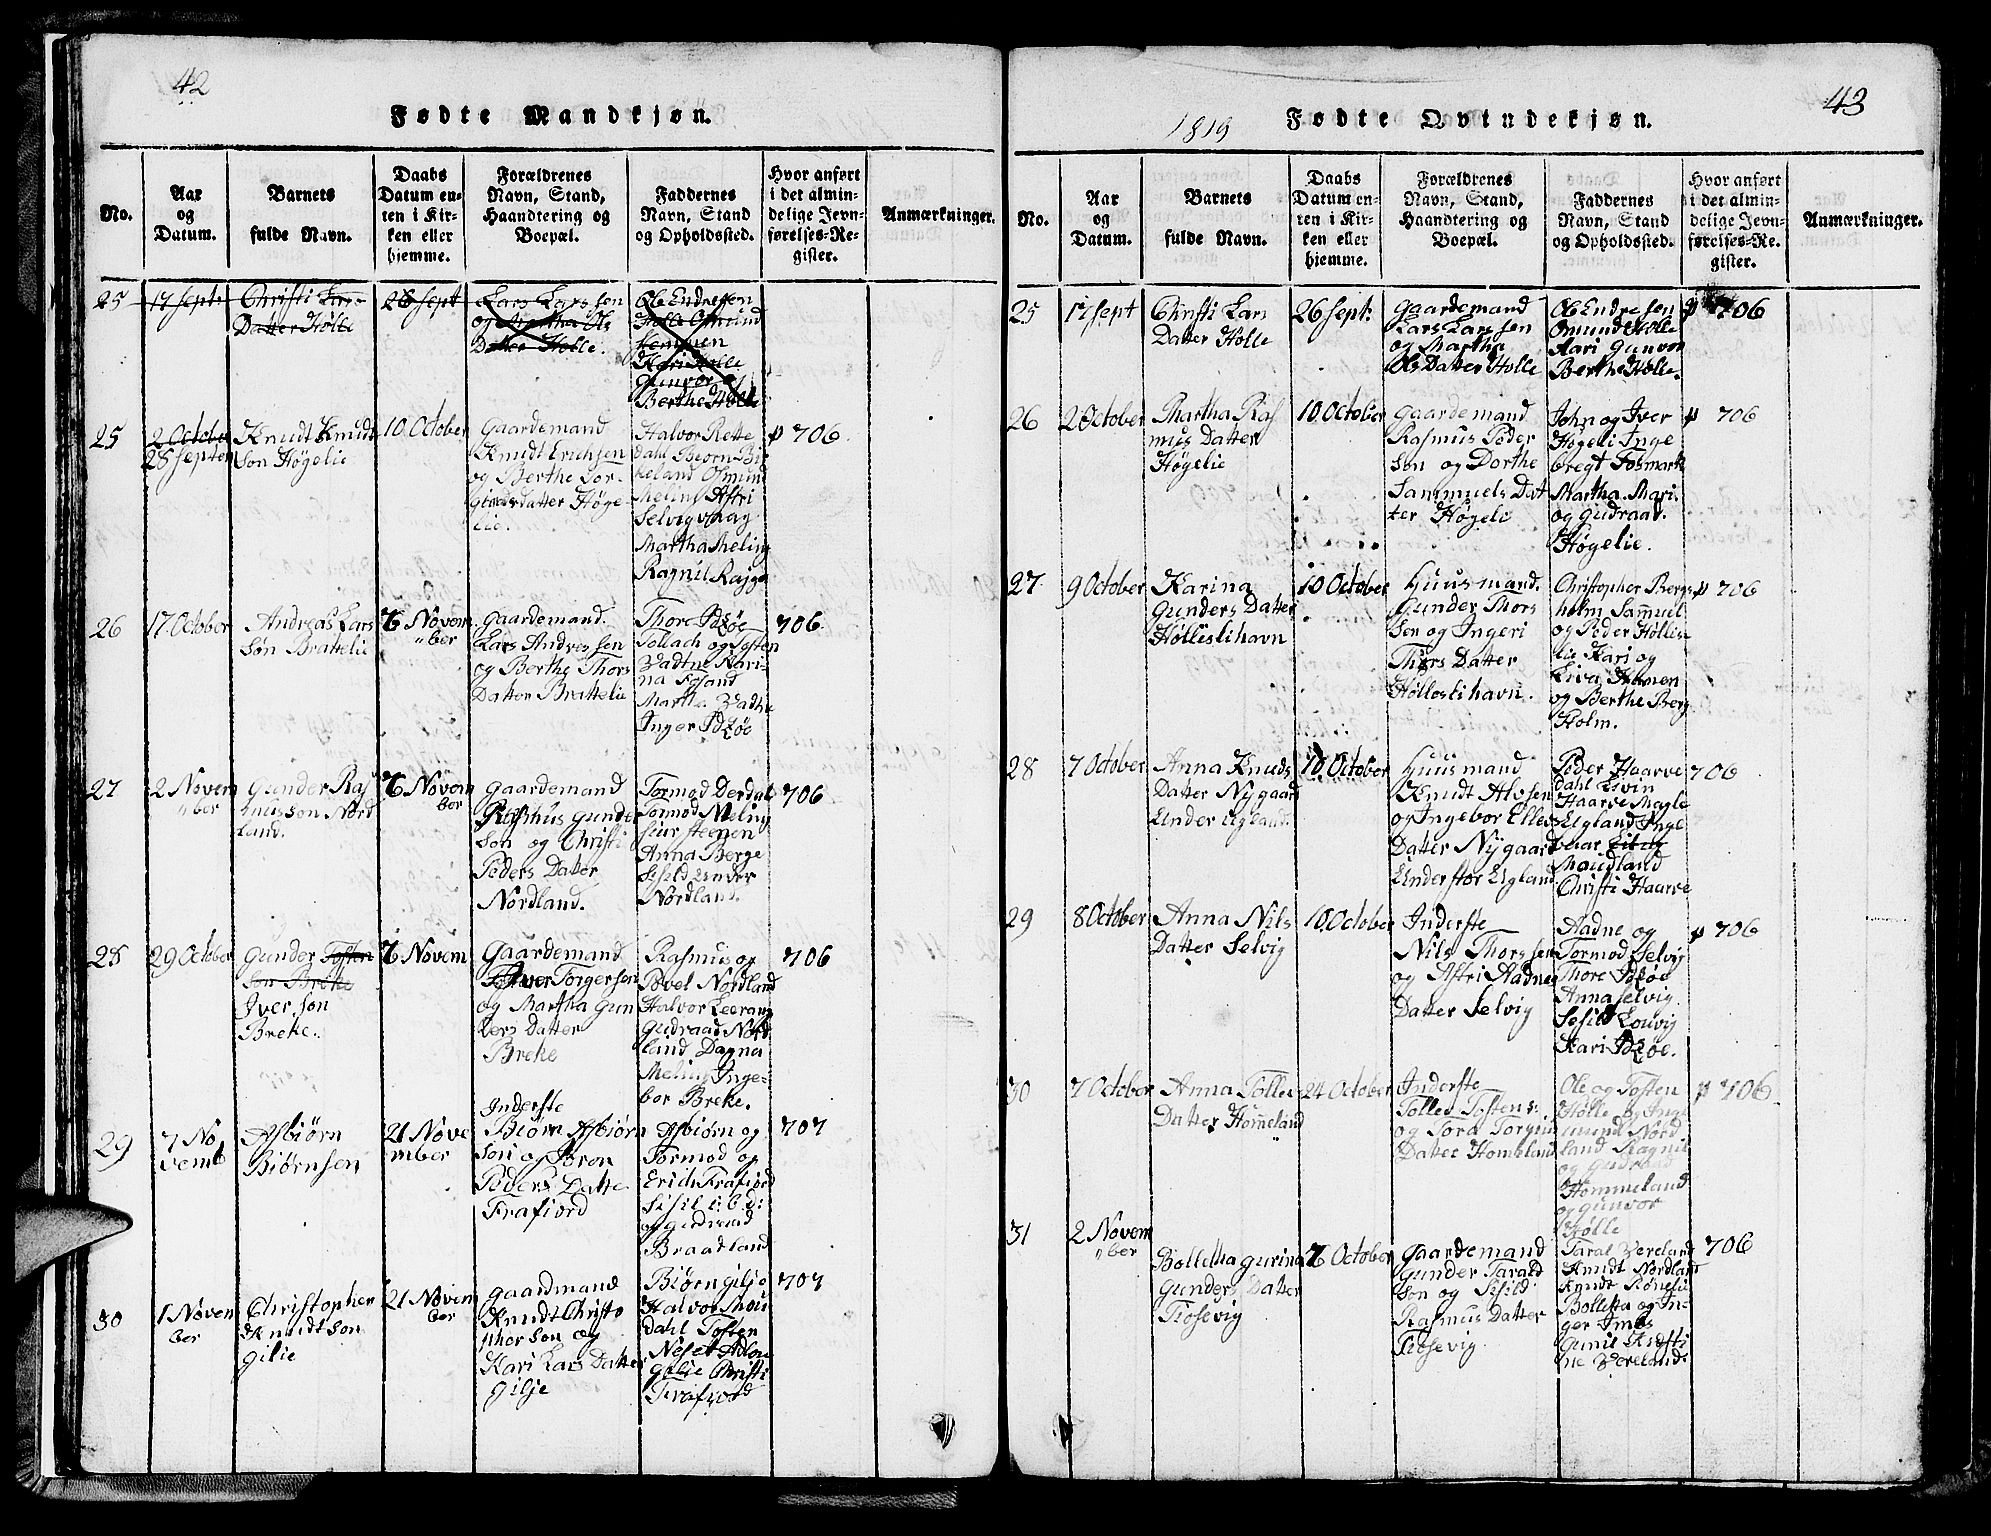 42
Fødte Mandkjøn.
No.
Aar
og
Datum.
Barnets
fulde Navn.
Daabs
Datum en-
ten i Kir-
ken eller
hjemme.
Forældrenes
Navn, Stand,
Haandtering og
Boepæl.
Faddernes
Navn, Stand
og Opholdssted.
Hvor anført
i det almin-
delige Jevn-
førelses-Re-
gister.
Anmærkninger.
25
17 Sept:
Christi Lars
Datter Hølle
26 Sept
Lars Larssen
og Martha Ols
Datter Hølle.
Ole Endresen
Hølle Osmund
Kari Hølle
Gunvor og
Berthe Hølle
25
2 October
28 Septem
Knudt Knudt
Søn Høgelie
10 October
Gaardemand
Knudt Erichsen
og Berthe Tor-
giersdatter Høge-
lie.
Halvor Rette
dahl Beorn Bir
keland Osmun
Meling Astri
Selvigvaag
Martha Meling
Ragnil Rajge
706
26
17 October
Andreas Lars
Søn Brattelie
7 Novem
ber
Gaardemand.
Lars Andressen
og Berthe Thors
Datter Brattelie
Thore Idzøe
Tollach og Tosten
Vadtne Kari-
na Foland
Martha Vadtne
Inger Idzøe
706
27
2 Novem
ber
Gunder Ras
musson Nord
land.
7 Novem
ber
Gaardemand
Rasmus Gunder
Søn og Christi
Peders Datter
Nordland.
Tormod Derdal
Tormod Meling
Siur Steenen
Anna Berge
Sisild Under
Nordland.
706
28
29 October
Gunder Tosten
Søn Breke
Iver Søn
Breke.
7 Novem
Gaardemand
Iver Torgersen
og Martha Gun
ders Datter
Breke
Rasmus og
Povel Nordland
Halvor Leerang
Gudraad Nord
land Dagna
Meling Inge-
bor Breke.
706
29
7 No
vemb
Asbiørn
Biørnsen
21 Nove
mber
Inderste
Biørn Asbiørn
Søn og Soron
Peders Datte
Frafiord
Asbiørn og
Tormod og
Erich Frafiord
Sisil i: b. d:
og Gudraad
Braadland
707
30
1 Novem
ber
Christopher
Knudtson
Gilie
21 Novem
ber
Gaadmand
Knudt Christo
phersøn og
Kari Lars Datter
Gilje
Biørn Gilje
Halvor Moi
dahl Tosten
Neset Adlou
Gilje Christi
Frafjord
707
43
1819
Fødte Qvindekjøn.
No.
Aar
og
Datum.
Barnets
fulde Navn.
Daabs
Datum en-
ten i Kir-
ken eller
hjemme.
Forældrenes
Navn, Stand,
Haandtering og
Boepæl.
Faddernes
Navn, Stand
og Opholdssted.
Hvor anført
i det almin-
delige Jevn-
førelses-Re-
gister.
Anmærkninger.
25
17 Sept
Christi Lars
Datter Hølle
26 Sept:
Gaardemand
Lars Larssen
og Martha
Ols Datter Hølle
Ole Endresen
Osmund Hølle
Kari Gunvor
Berthe Hølle.
p 706
26
2 October
Martha Ras
mus Datter
Høgelie
10 October
Gaardemand
Rasmus Peder
Søn og Dorthe
Sammuels Dat
ter Høgeli
John og Iver
Høgeli Inge
bregt Fosmark
Martha Mari
og Gudraad.
Høgelie.
p 706
27
9 October
Karina
Gunders Datter
Høllislihavn
10 October
Huusmand.
Gunder Thors
Sen og Ingeri
Thors Datter
Hølleslihavn.
Christopher Bergs
holm Sammuel
og Peder Høllis
lie Kari og
Liva Holmen
og Berthe Berg
Holm.
p 706
28
7 October
Anna Knuds
Datter Nygaard
Under Ugland.
10 October
Huusmand
Knudt Alvsen
og Ingebor Ellevs
Datter Nygaard
Under stor Ugland
Peder Haarve
dahl Elvin
Haarve Magle
Ugland Inge
Moudland
Christi Haarve
706
29
8 October
Anna Nils
Datter Selvig
10 October
Inderste
Nils Thorssen
og Astri Aadnes
Datter Selvig
Aadne og
Tormod Selvig
Thore Idzøe
Anna Selvig
Sisild Louvig
Kari Idzøe.
p 706
30
7 October
Anna Tolles
Datter Hommeland
24 October
Inderste
Tolles Tostens:
og Tora Torgers
Datter Homeland
Ole og Tosten
Hølle og Inge
mund Nord
land Ragnil
og Gudraad
Hommeland
og Gunvor
Hølle
p 706
31
2 Novem
ber
Bolletha Gurina
Gunders Datter
Fiosevig
7 October
Gaardemand
Gunder Tarald
Søn og Sisild
Rasmus Datter
Fiosevig.
Taral Vereland
Knudt Nordland
Knudt Rønelie
Bolletta og In-
ger Imes
Gunil Kirsti
ne Vereland.
706